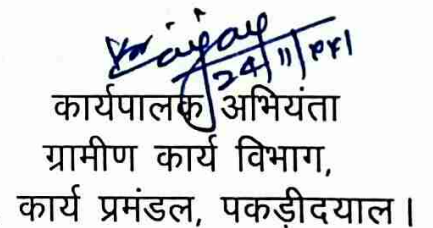 24/11
कार्यपालक अभियंता
ग्रामीण कार्य विभाग,
कार्य प्रमंडल, पकड़ीदयाल।